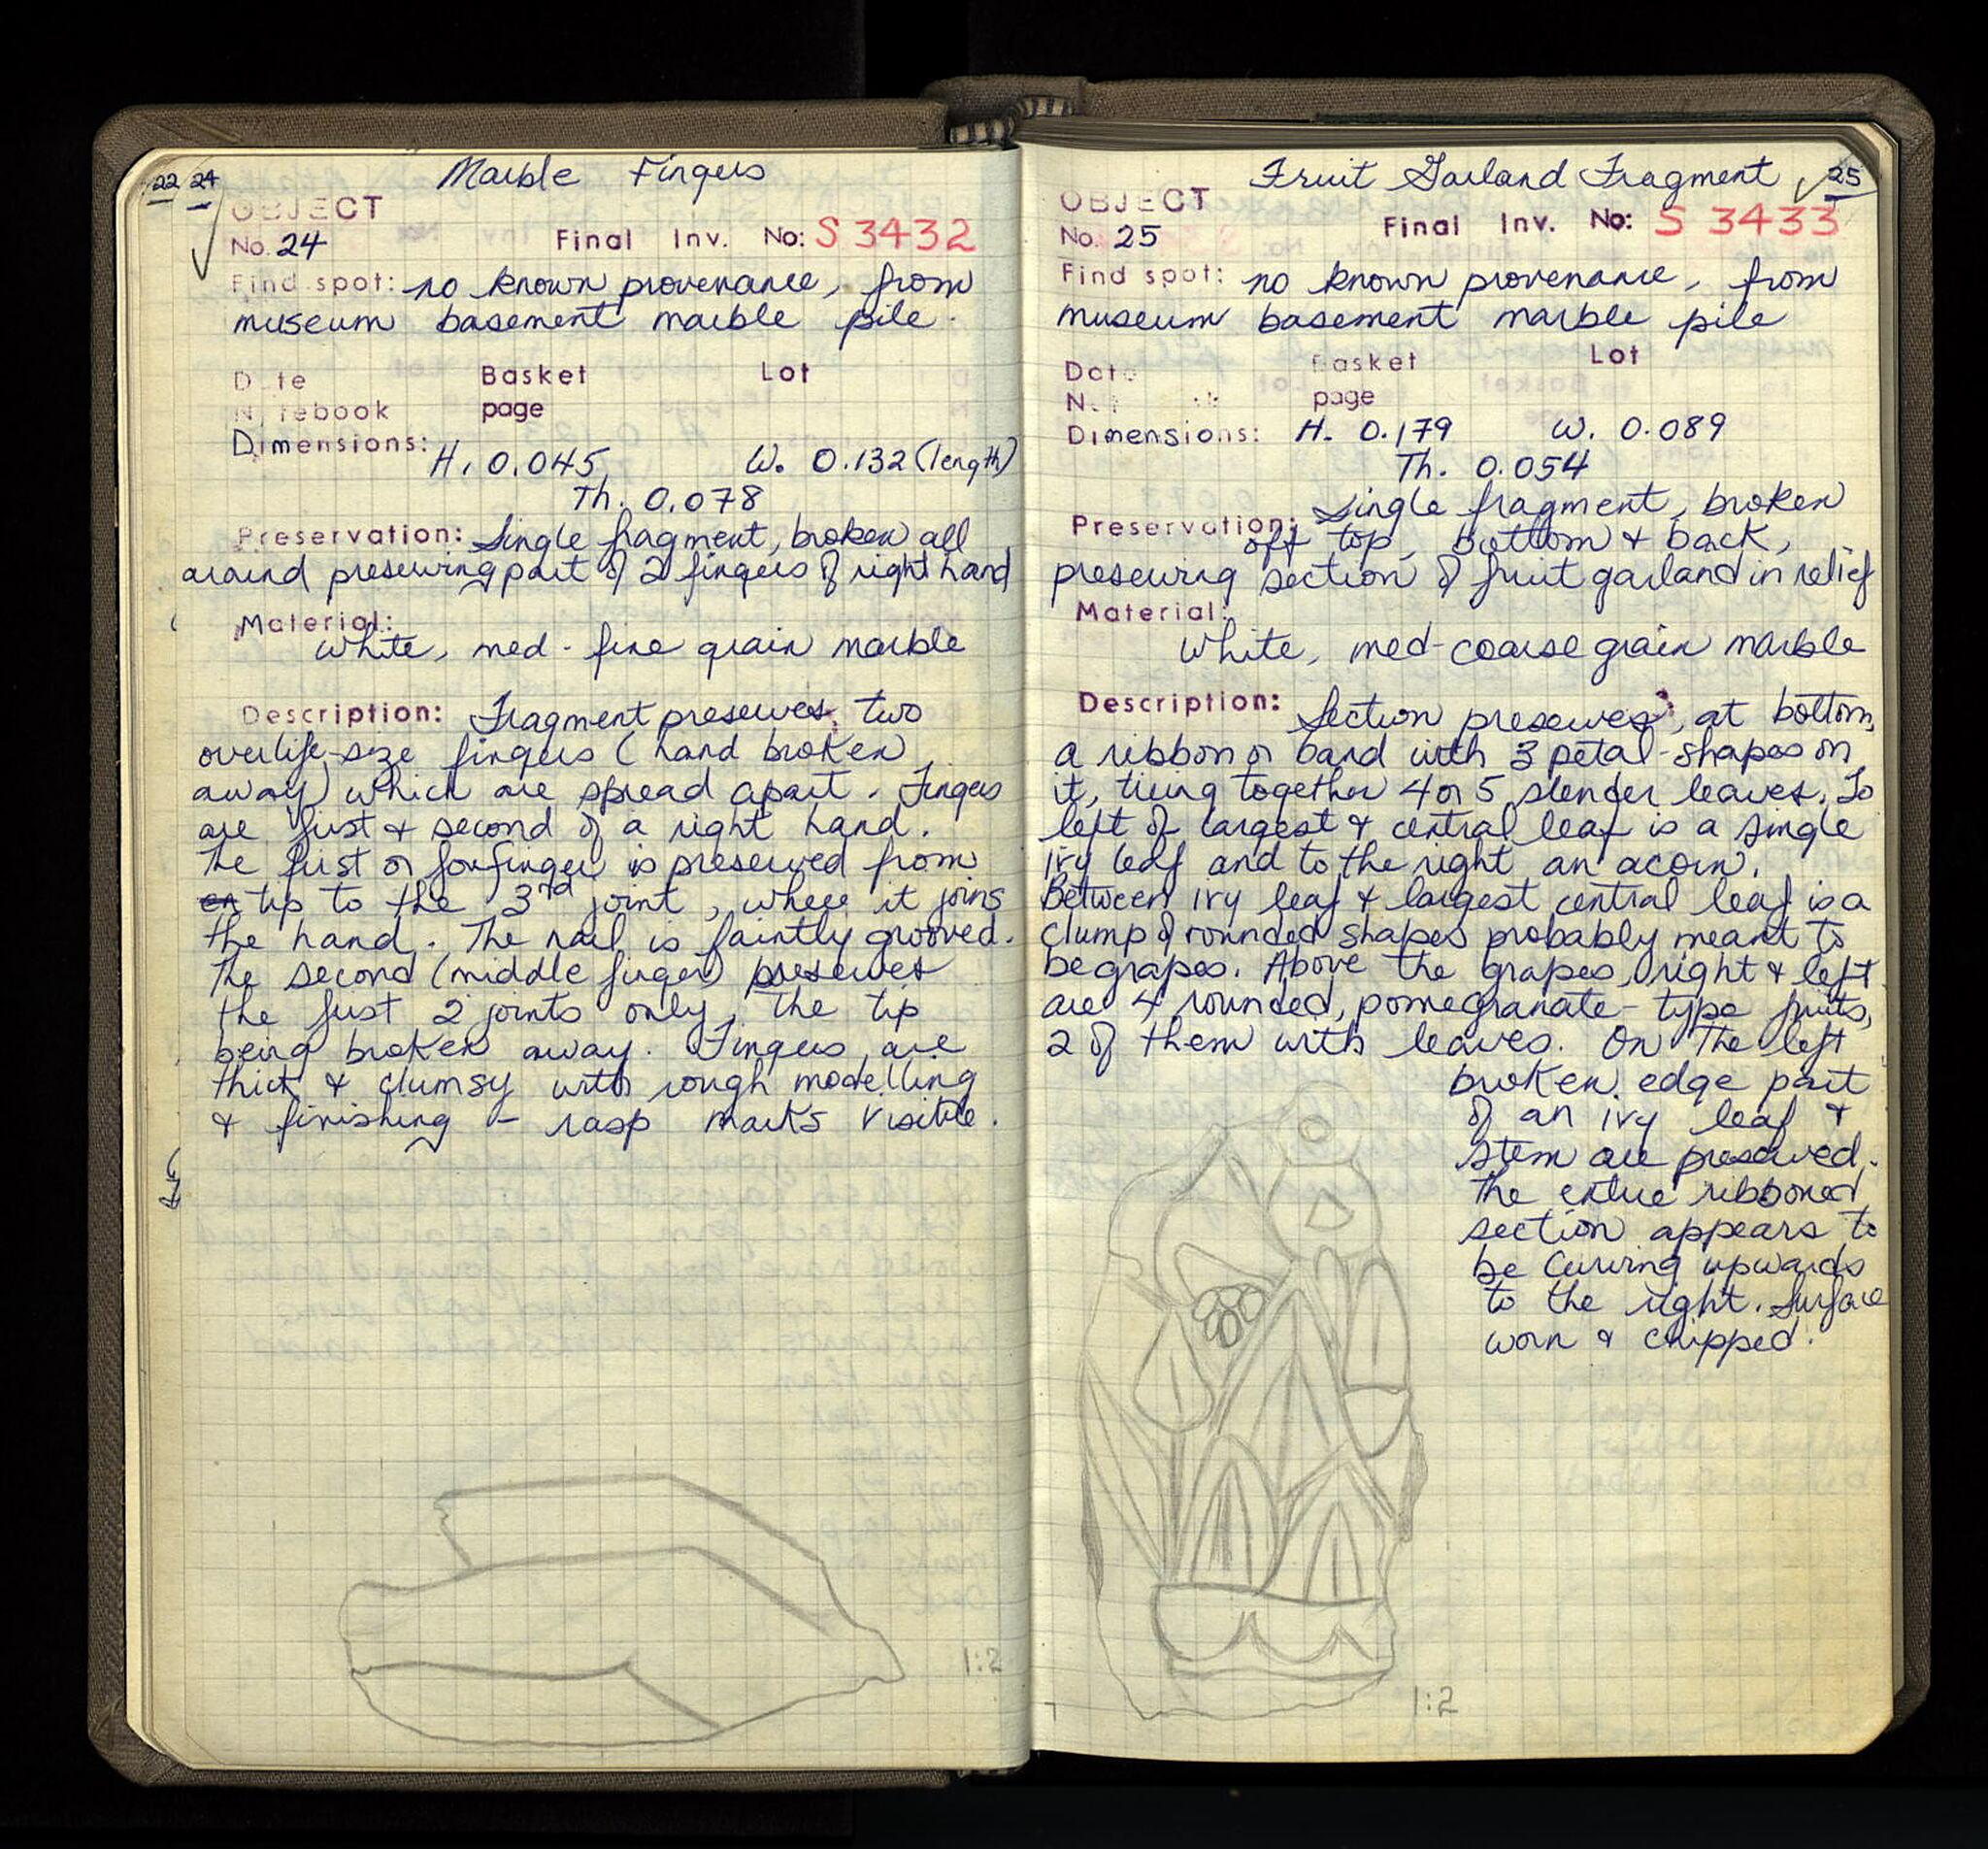 22 24
Marble Fingers
OBJECT
No. 24 Final Inv. No: S 3432
Find spot: no known provenance, from
museum basement marble pile.
Date Basket Lot
Notebook page
Dimensions:
H. 0.045 W. 0.132 (length)
Th. 0.078
Preservation: Single fragment, broken all
around preserving part of 2 fingers of right hand
Material:
White, med-fine grain marble
Description: Fragment preserves two
overlife-size fingers (hand broken
away) which are spread apart. Fingers
are first & second of a right hand.
The first or forfinger is preserved from
tip to the 3rd joint, where it joins
the hand. The nail is faintly grooved.
The second (middle finger) preserves
the first 2 joints only, the tip
being broken away. Fingers are
thick & clumsy with rough modelling
& finishing – rasp marks visible.
1:2
Fruit Garland Fragment 25
OBJECT
No. 25 Final Inv. No: S 3433
Find spot: no known provenance, from
museum basement marble pile
Date Basket Lot
page
Dimensions: H. 0.179 W. 0.089
Th. 0.054
Preservation: Single fragment, broken
off top, bottom & back,
preserving section of fruit garland in relief
Material:
White, med-coarse grain marble
Description: Section preserves, at bottom,
a ribbon or band with 3 petal-shapes on
it, tieing together 4 or 5 slender leaves. To
left of largest & central leaf is a single
ivy leaf and to the right an acorn.
Between ivy leaf & largest central leaf is a
clump of rounded shapes probably meant to
be grapes. Above the grapes, right & left
are 4 rounded, pomegranate-type fruits,
2 of them with leaves. On the left
broken edge part
of an ivy leaf &
stem are preserved.
The entire ribboned
section appears to
be curving upwards
to the right. Surface
worn & chipped.
1:2